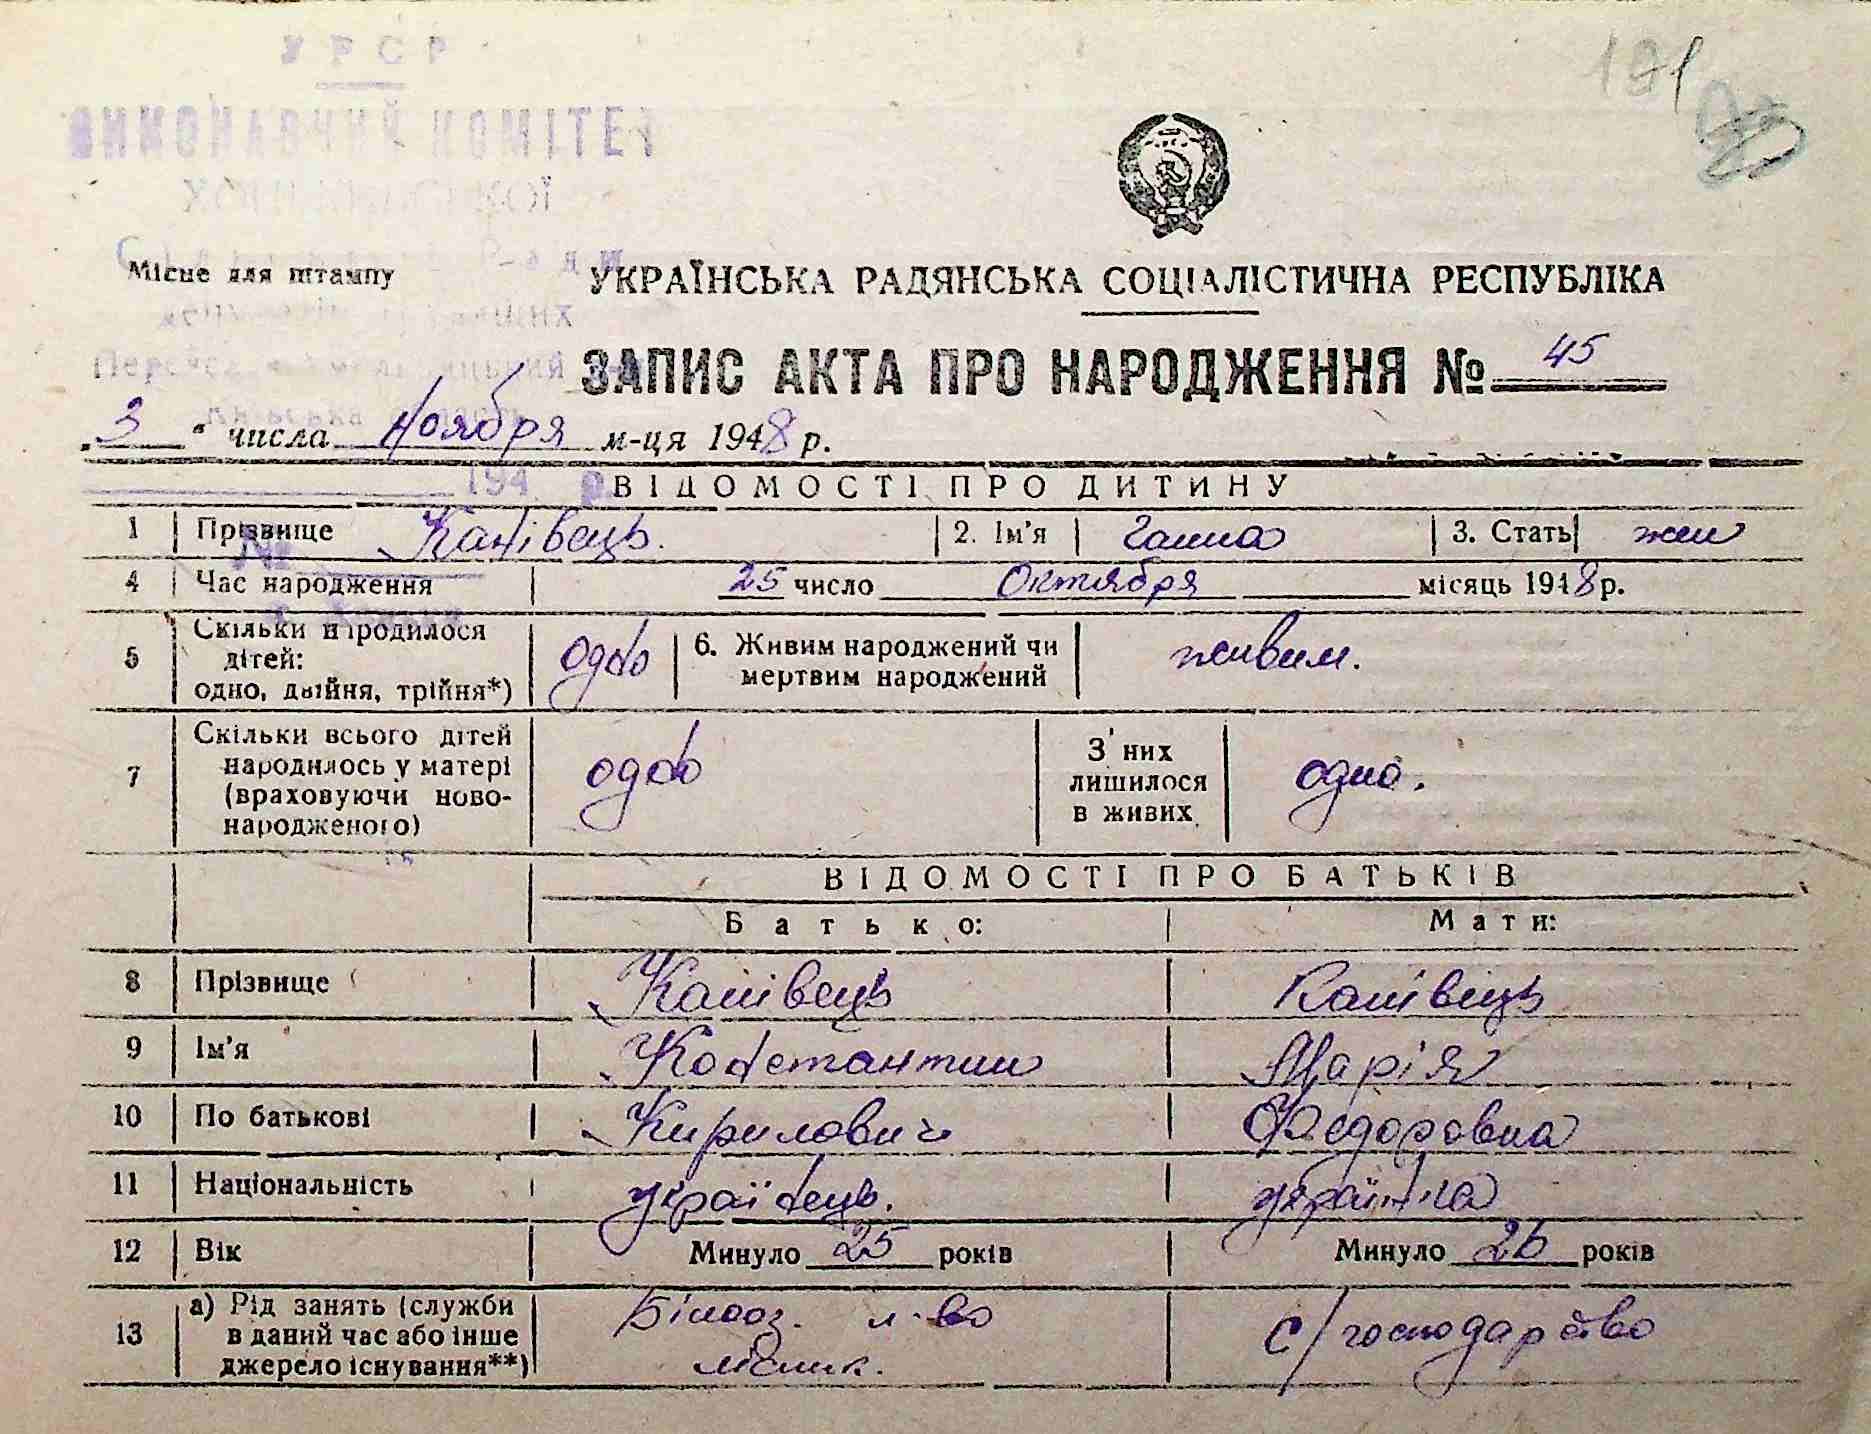 УРСР
ВИКОНАВЧИЙ КОМІТЕТ
191
Місце для штампу
УКРАЇНСЬКА РАДЯНСЬКА СОЦІАЛІСТИЧНА РЕСПУБЛІКА
ЗАПИС АКТА ПРО НАРОДЖЕННЯ № 45
„3“ числа Ноября м-ця 1948 р.
194 р.
ВІДОМОСТІ ПРО ДИТИНУ
1 Прізвище Канівець. 2. Ім'я Ганна 3. Стать жен
№
4 Час народження 25 число Октября місяць 1948 р.
5 Скільки народилося дітей: одно, двійня, трійня*) одно 6. Живим народжений чи мертвим народжений живим.
7 Скільки всього дітей народилось у матері (враховуючи новонародженого) одно З них лишилося в живих одно.
ВІДОМОСТІ ПРО БАТЬКІВ
Батько: Мати:
8 Прізвище Канівець Канівець
9 Ім'я Константин Марія
10 По батькові Кирилович Федоровна
11 Національність українець. українка
12 Вік Минуло 25 років Минуло 26 років
13 а) Рід занять (служби в даний час або інше джерело існування**) Білооз. л-во лісник. с/господарство